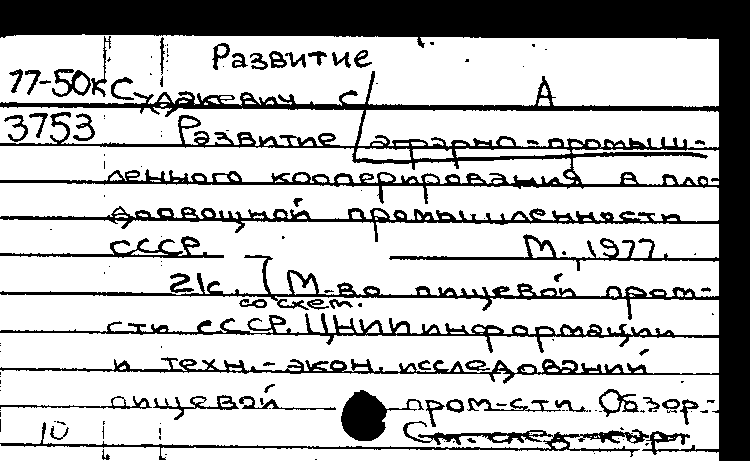 Развитие
77-50к Судакевич, С А
3753 Развитие аграрно-промыш-
ленного кооперирования в пло-
доовощной промышленности
СССР. М., 1977.
21с. (М-во пищевой пром-
со схем.
сти СССР. ЦНИИ информации
и техн.-экон. исследований
пищевой пром-сти. Обзор.
10 См. след. карт.